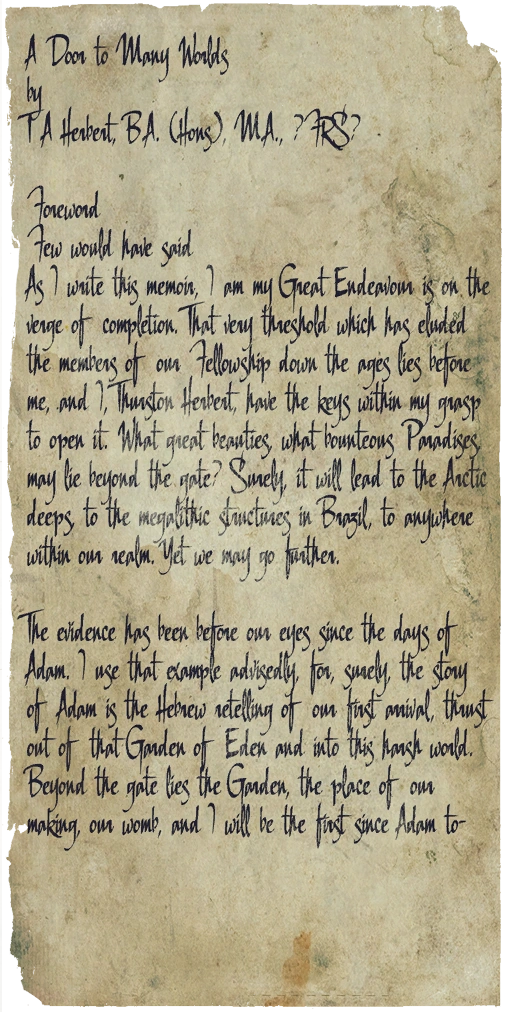 A Door to Many Worlds
by
T A Herbert, B.A. (Hons), M.A., ?FRS?
Foreword
Few would have said
As I write this memoir, I am my Great Endeavour is on the
verge of completion. That very threshold which has eluded
the members of our Fellowship down the ages lies before
me, and I, Thurston Herbert, have the keys within my grasp
to open it. What great beauties, what bounteous Paradises,
may lie beyond the gate? Surely, it will lead to the Arctic
deeps, to the megalithic structures in Brazil, to anywhere
within our realm. Yet we may go further.
The evidence has been before our eyes since the days of
Adam. I use that example advisedly, for, surely, the story
of Adam is the Hebrew retelling of our first arrival, thrust
out of that Garden of Eden and into this harsh world.
Beyond the gate lies the Garden, the place of our
making, our womb, and I will be the first since Adam to-